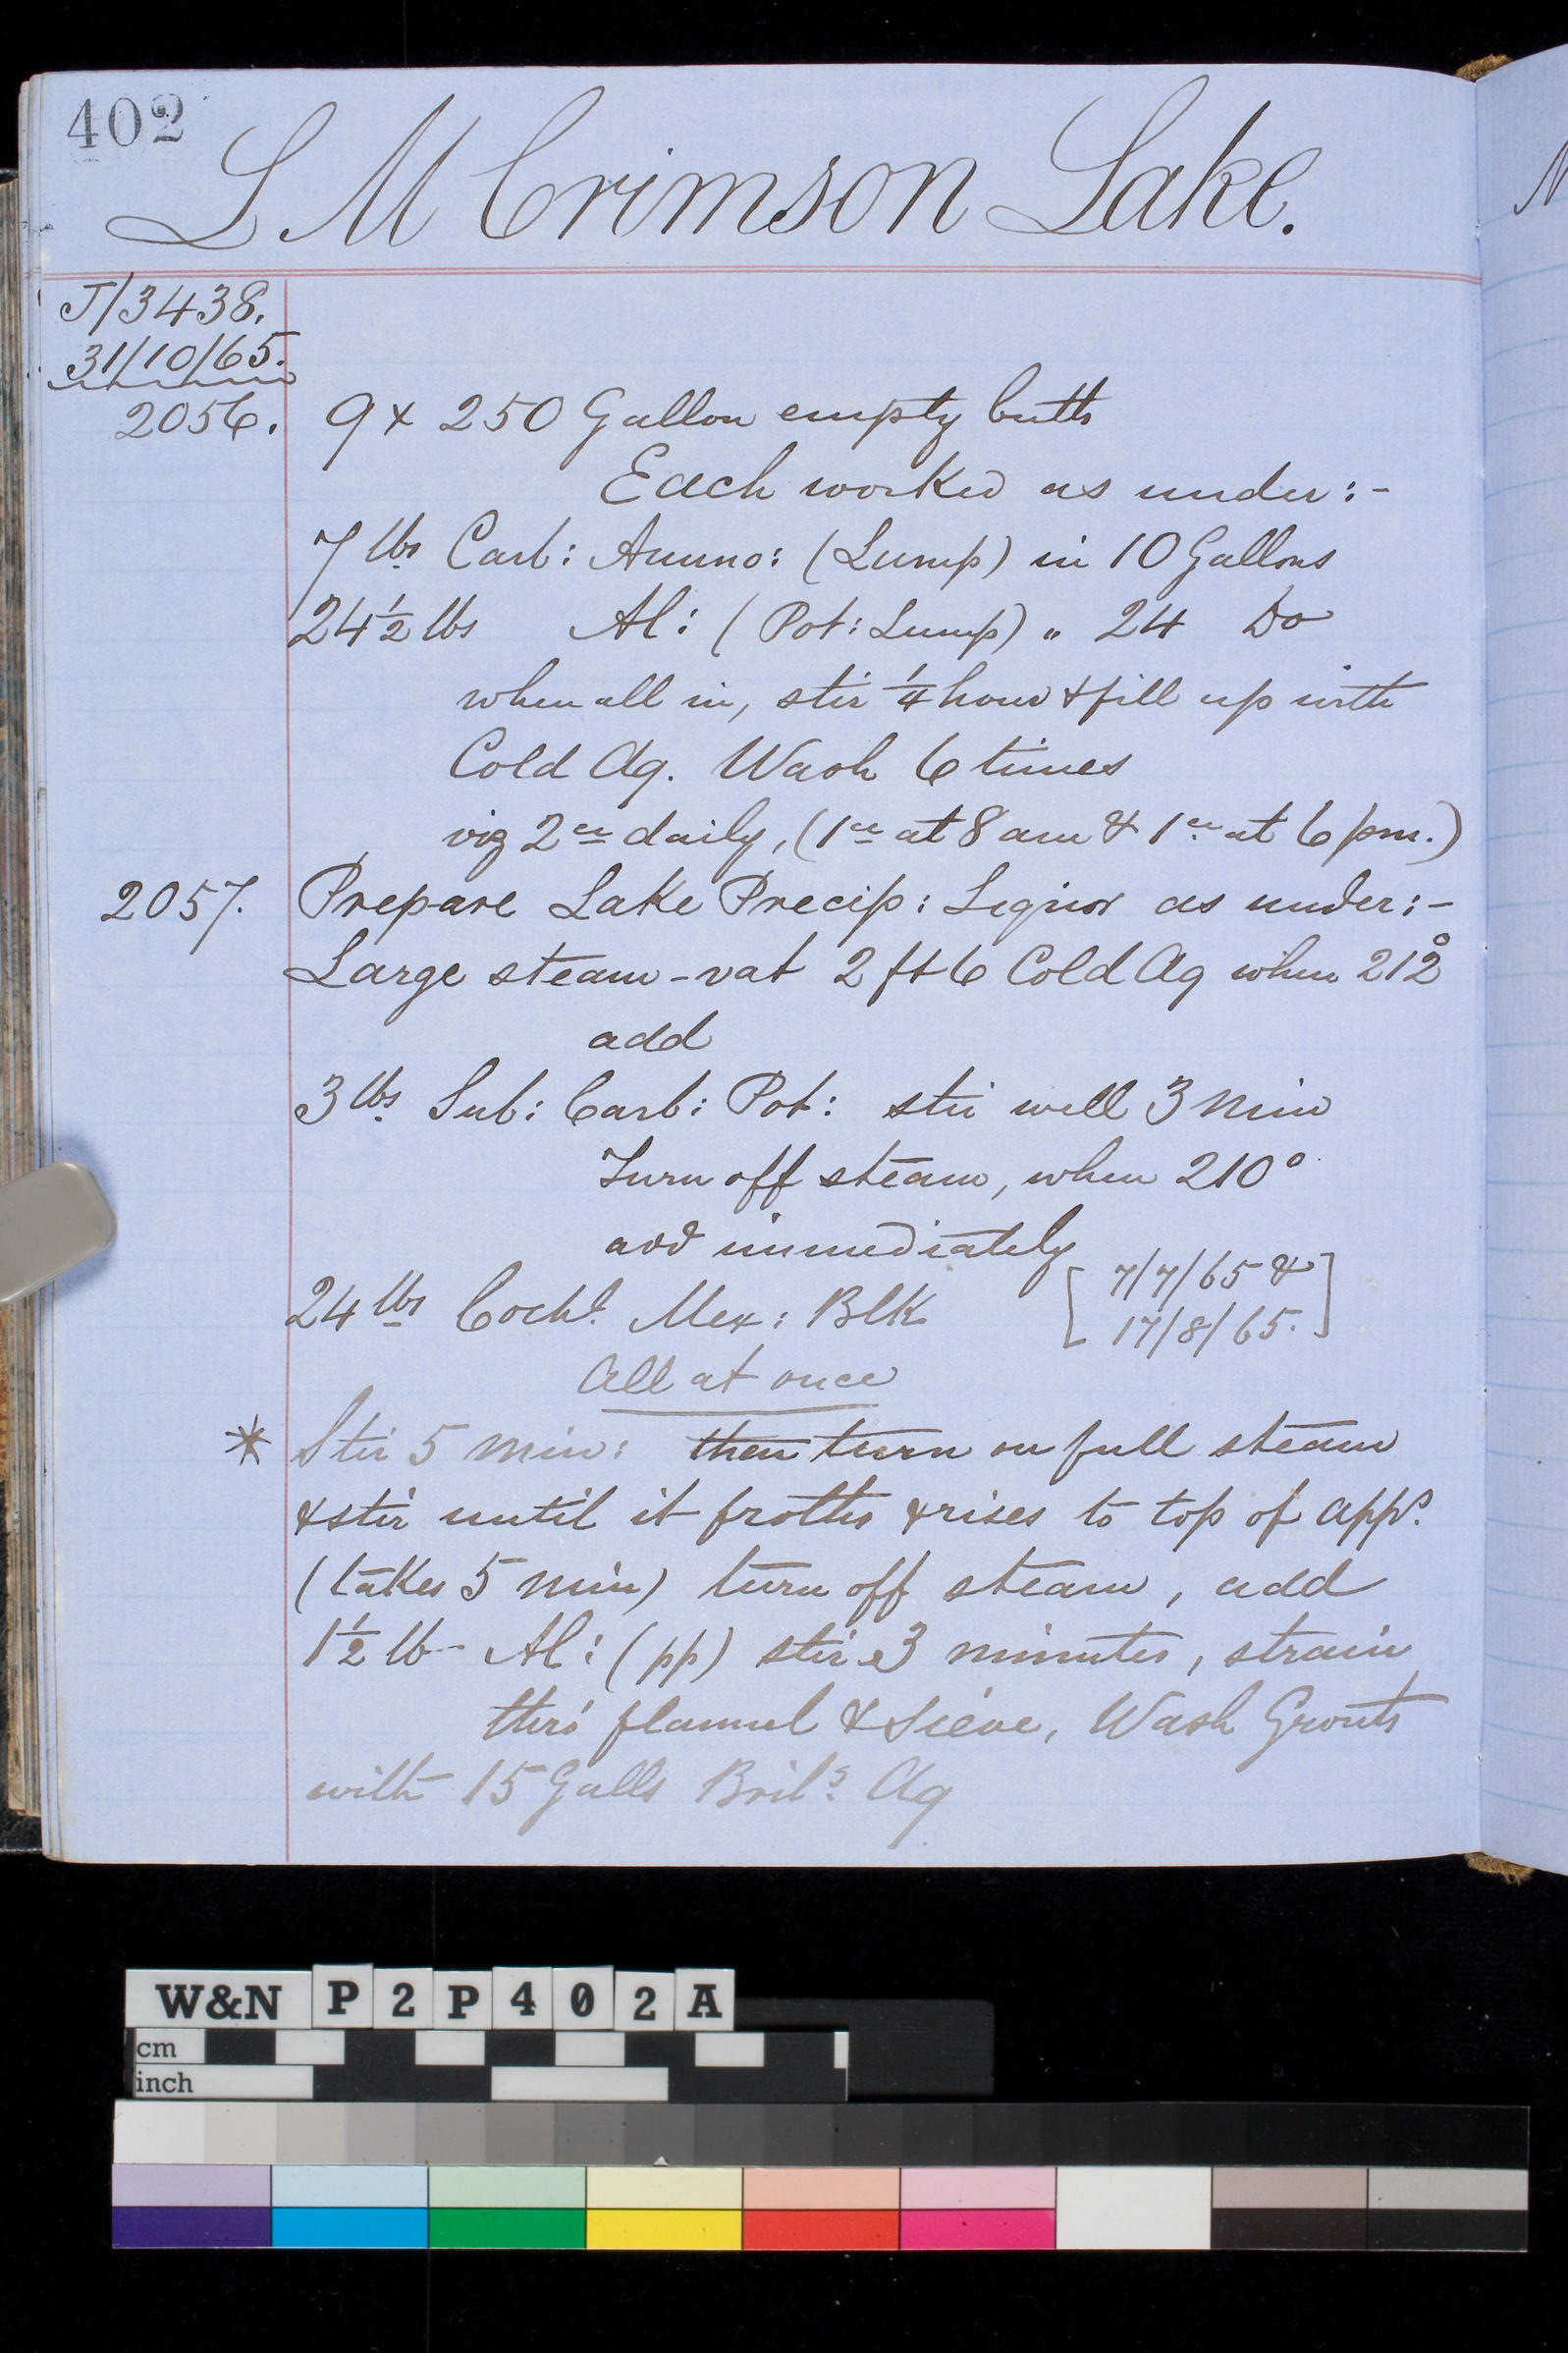 402
L M Crimson Lake.
J/3438.
31/10/65.
2056. 9 x 250 Gallon empty butts
Each worked as under:-
7 lbs Carb: Ammo: (Lump) in 10 Gallons
24 1/2 lbs Al: (Pot: Lump) " 24 Do
when all in, stir 1/4 hour & fill up with
Cold Aq. Wash 6 times
viz 2ce daily, (1ce at 8 am & 1ce at 6 pm.)
2057. Prepare Lake Precip: Liquor as under:-
Large steam-vat 2 ft 6 Cold Aq when 212°
add
3 lbs Sub: Carb: Pot: stir well 3 min
Turn off steam, when 210°
add immediately
24 lbs Cochl. Mex: Blk [7/7/65 &
17/8/65.]
All at once
* Stir 5 min: then turn on full steam
& stir until it froths & rises to top of apps.
(takes 5 min) turn off steam, add
1 1/2 lb Al: (pp) stir 3 minutes, strain
thro' flannel & Sieve, Wash Grouts
with 15 Galls Boilg. Aq
W&N P2P402A
cm
inch